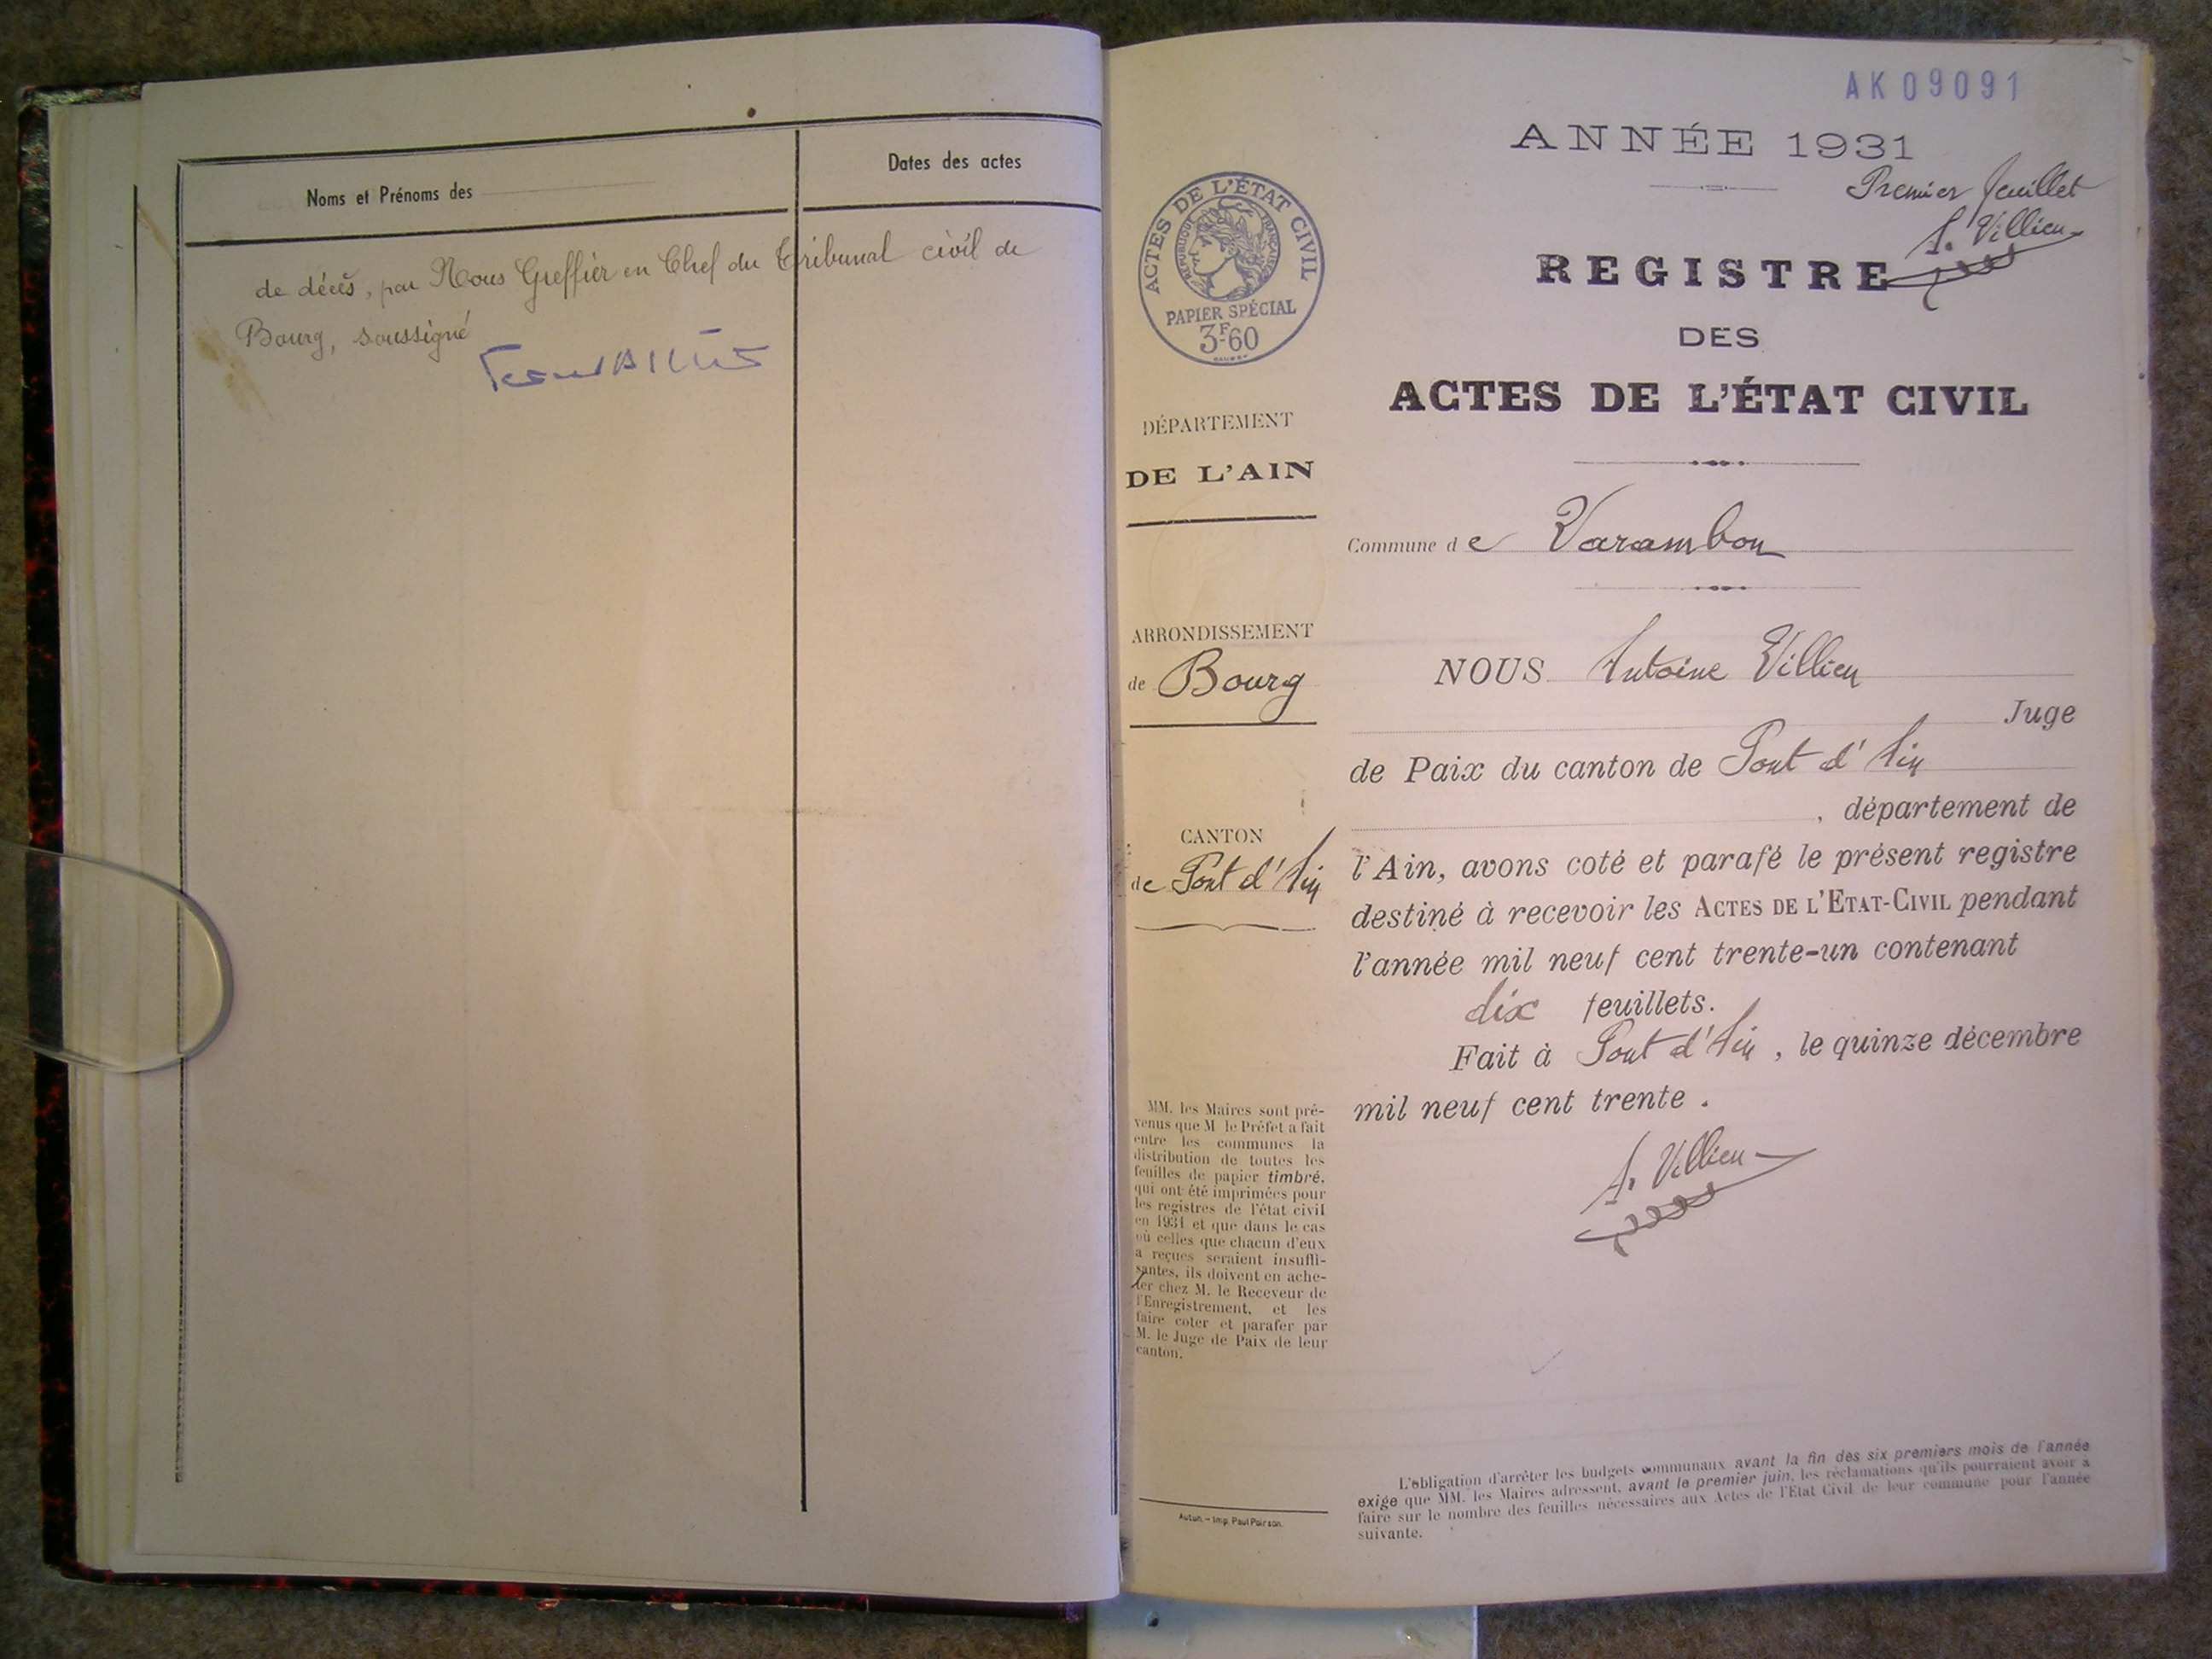 Noms et Prénoms des
Dates des actes
de décès, par Nous Greffier en Chef du Tribunal civil de
Bourg, soussigné
AK09091
ANNÉE 1931
Premier feuillet
A. Villien
REGISTRE
DES
ACTES DE L'ÉTAT CIVIL
ACTES DE L'ÉTAT CIVIL
RÉPUBLIQUE FRANÇAISE
PAPIER SPÉCIAL
3F60
DÉPARTEMENT
DE L'AIN
Commune de Varambon
ARRONDISSEMENT
de Bourg
NOUS Antoine Villien
Juge
de Paix du canton de Pont d'Ain
, département de
CANTON
de Pont d'Ain
l'Ain, avons coté et parafé le présent registre
destiné à recevoir les ACTES DE L'ETAT-CIVIL pendant
l'année mil neuf cent trente-un contenant
dix feuillets.
Fait à Pont d'Ain, le quinze décembre
mil neuf cent trente.
A. Villien
MM. les Maires sont pré-
venus que M le Préfet a fait
entre les communes la
distribution de toutes les
feuilles de papier timbré.
qui ont été imprimées pour
les registres de l'état civil
en 1931 et que dans le cas
où celles que chacun d'eux
a reçues seraient insuffi-
santes, ils doivent en ache-
ter chez M. le Receveur de
l'Enregistrement, et les
faire coter et parafer par
M. le Juge de Paix de leur
canton.
Autun. - Imp. Paul Poirson.
L'obligation d'arrêter les budgets communaux avant la fin des six premiers mois de l'année
exige que MM. les Maires adressent, avant le premier juin, les réclamations qu'ils pourraient avoir à
faire sur le nombre des feuilles nécessaires aux Actes de l'Etat Civil de leur commune pour l'année
suivante.